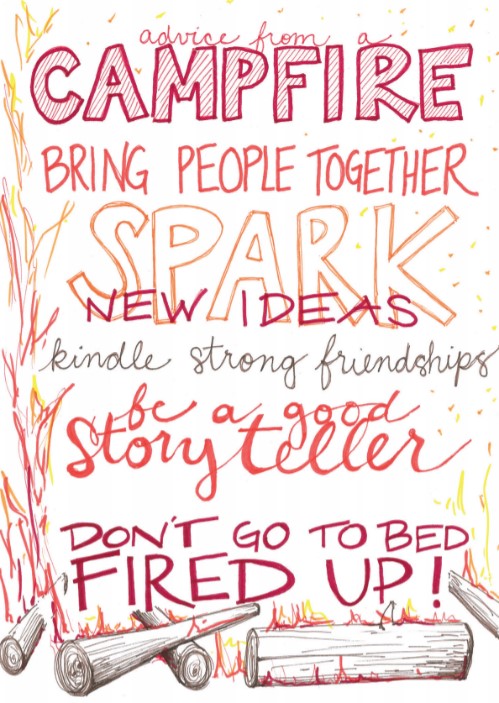 advice from a
CAMPFIRE
BRING PEOPLE TOGETHER
SPARK
NEW IDEAS
kindle strong friendships
be a good
Storyteller
DON'T GO TO BED
FIRED UP!